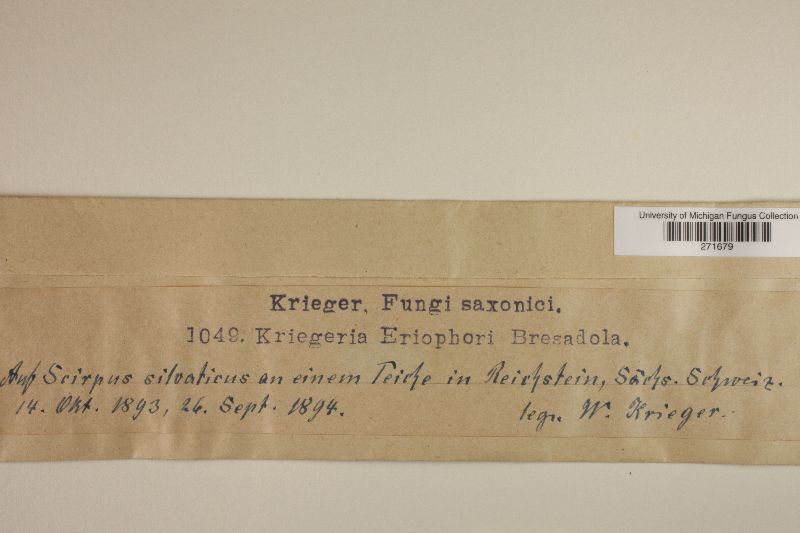 University of Michigan Fungus Collection
271679
Krieger, Fungi saxonici.
1049. Kriegeria Eriophori Bresadola.
Auf Scirpus silvaticus an einem Teiche in Reichstein, Sächs. Schweiz.
14. Okt. 1893, 26. Sept. 1894. leg. W. Krieger.